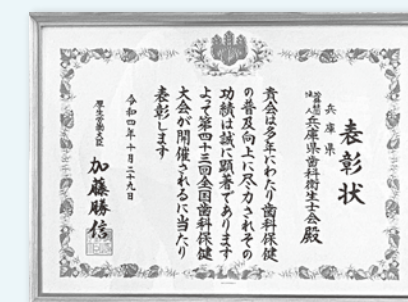 表彰状
兵庫県
公益社団法人兵庫県歯科衛生士会殿
貴会は多年にわたり歯科保健
の普及向上に尽力されその
功績は誠に顕著であります
よって第四十三回全国歯科保健
大会が開催されるに当たり
表彰します
令和四年十月二十九日
厚生労働大臣 加藤勝信